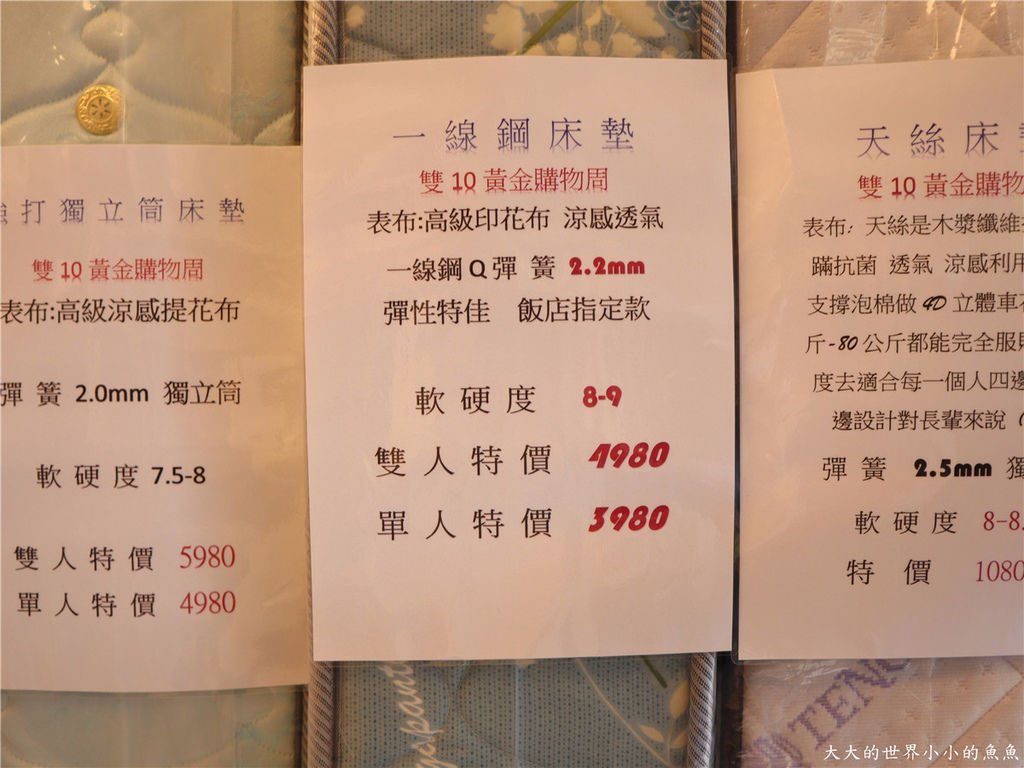 打獨立筒床墊
雙10黃金購物周
表布:高級涼感提花布
彈簧 2.0mm 獨立筒
軟硬度 7.5-8
雙人特價 5980
單人特價 4980
一線鋼床墊
雙10黃金購物周
表布:高級印花布 涼感透氣
一線鋼Q彈簧 2.2mm
彈性特佳 飯店指定款
軟硬度 8-9
雙人特價 4980
單人特價 3980
天絲床
雙10黃金購物
表布: 天絲是木漿纖維
蹣抗菌 透氣 涼感利用
支撐泡棉做 4D 立體車
斤-80公斤都能完全服
度去適合每一個人四邊
邊設計對長輩來說
彈簧 2.5mm 獨
軟硬度 8-8
特價 1080
TENC
大大的世界小小的魚魚